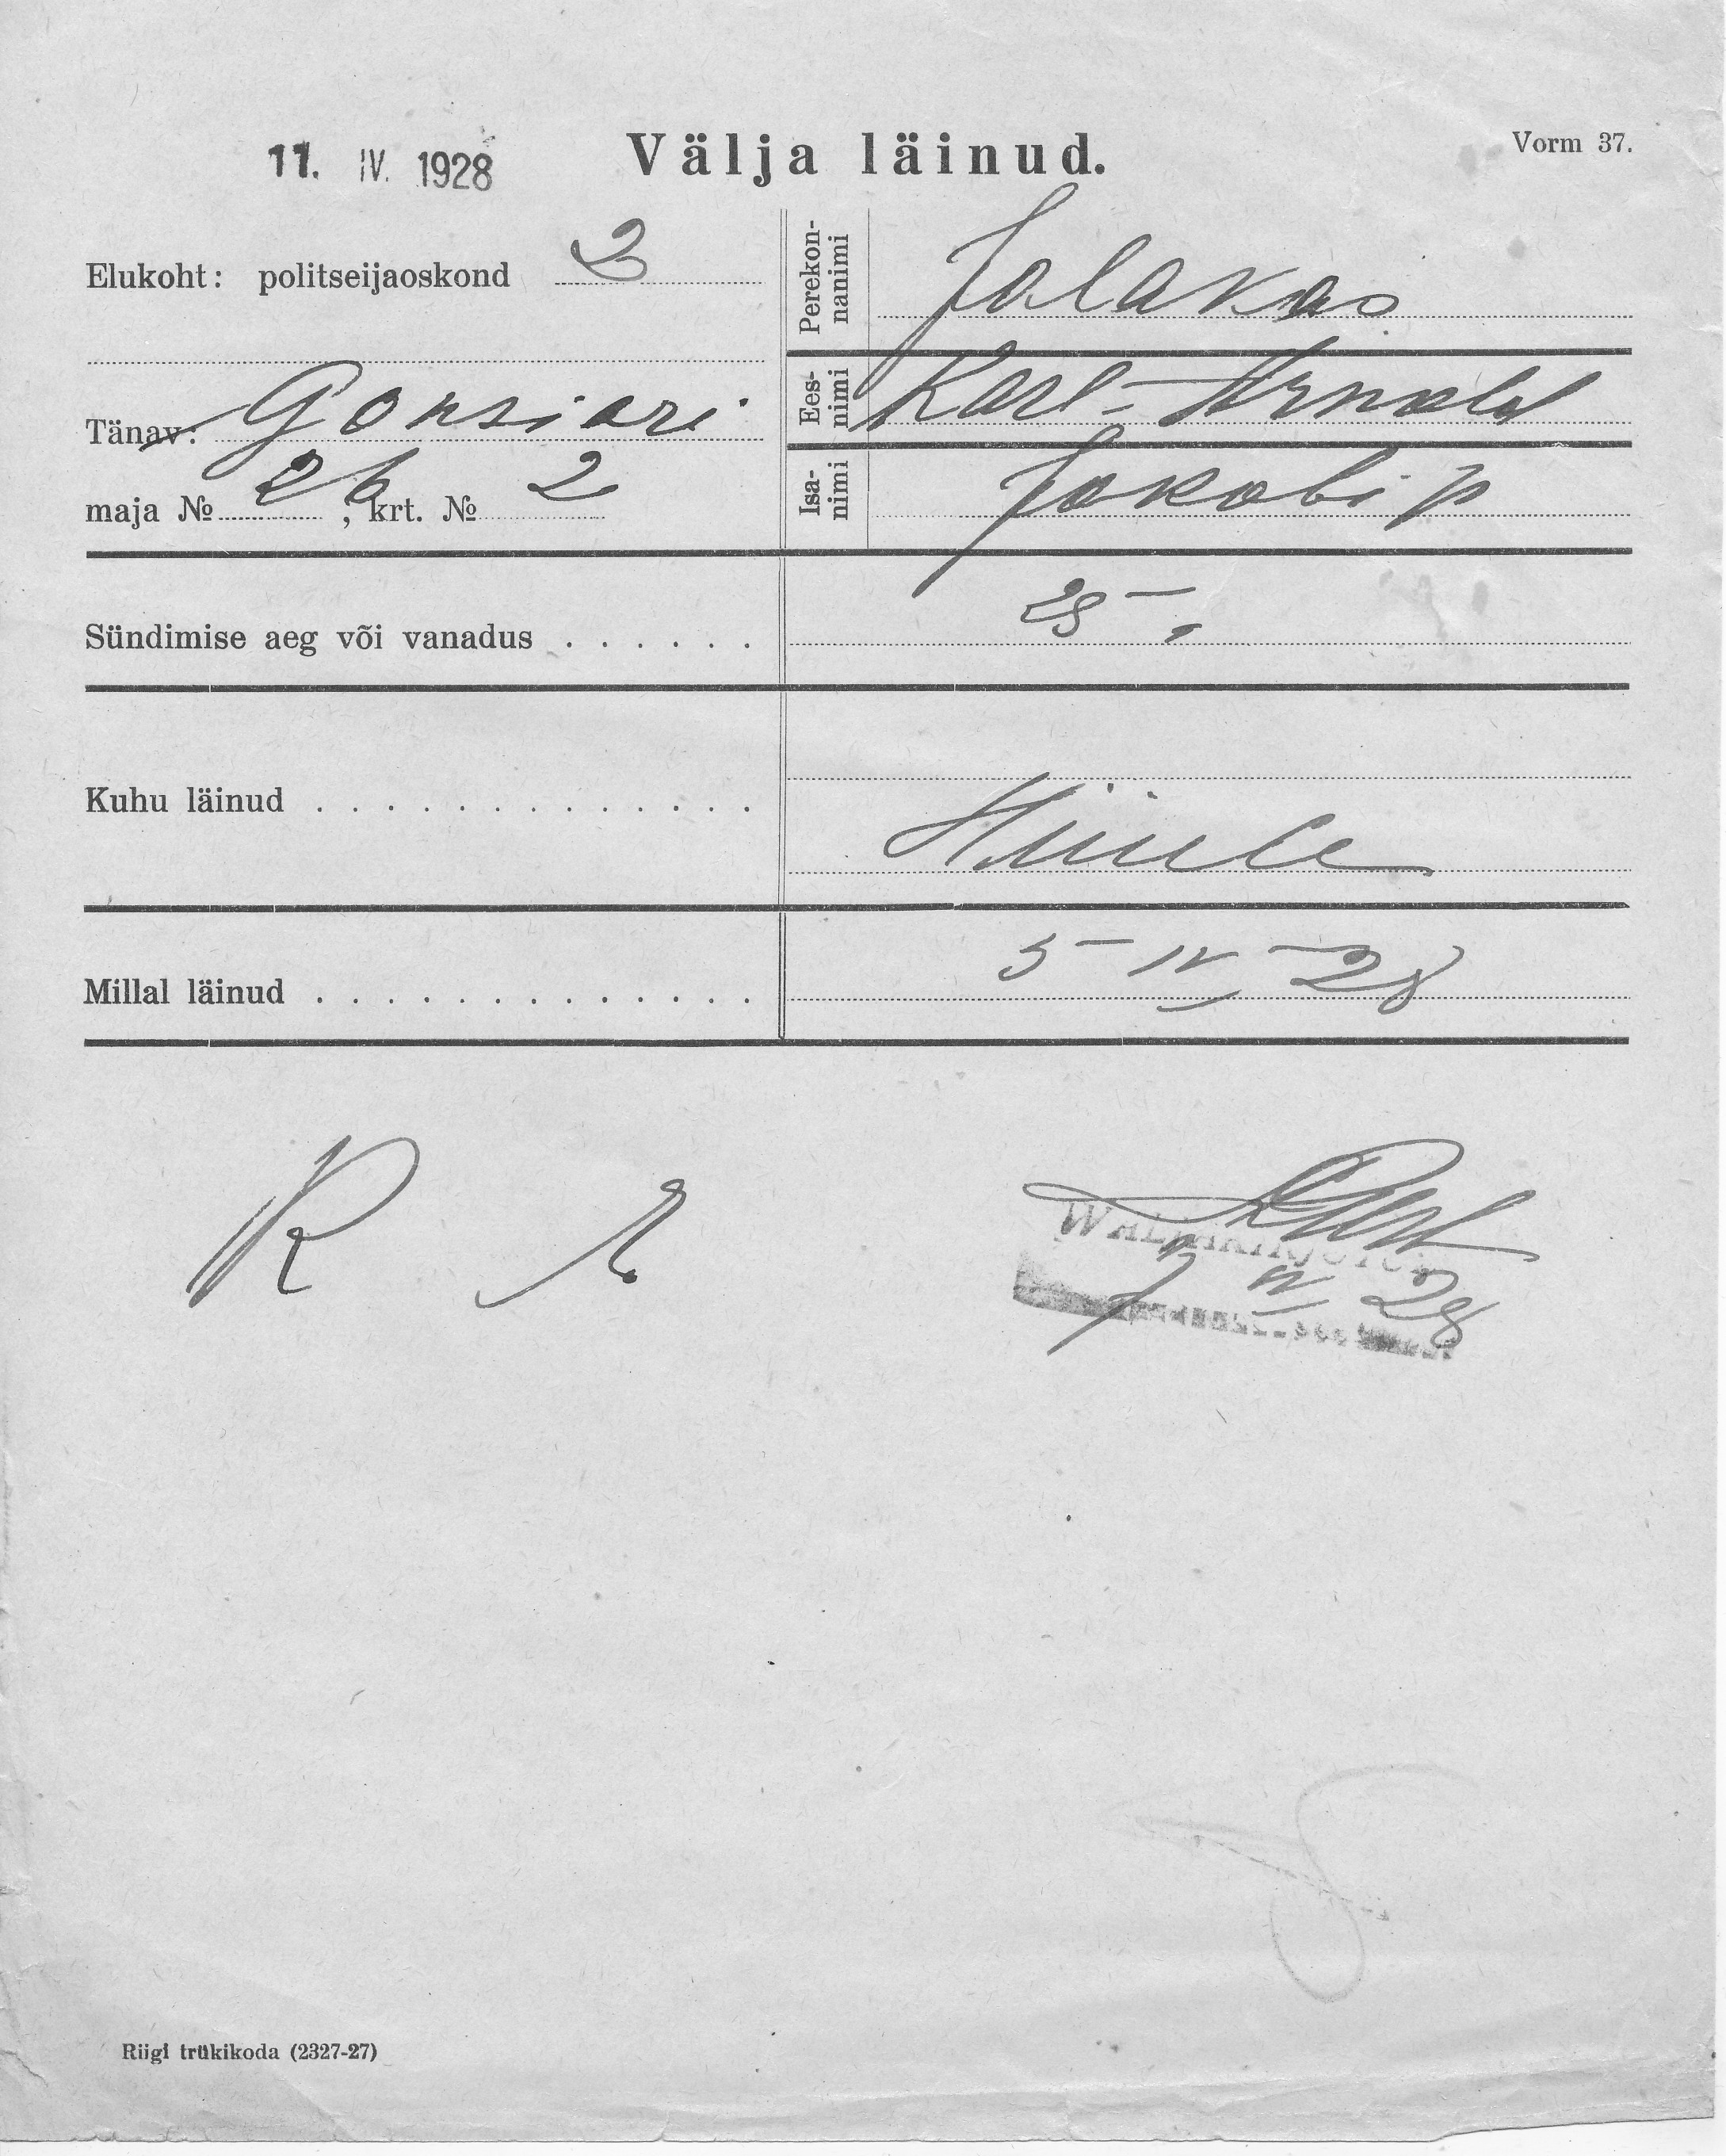 11. IV. 1928
Välja läinud.
Vorm 37.
Elukoht: politseijaoskond 2
Tänav: Gonsiori
maja № 26, krt. № 2
Perekon-
nanimi
Jalakas
Ees-
nimi
Karl-Arnold
Isa-
nimi
Jakobi p
Sündimise aeg või vanadus . . . . . .
Kuhu läinud . . . . . . . . . . . . . .
Millal läinud . . . . . . . . . . . . . .
5 - IV - 28
7 IV 28
Riigi trükikoda (2327-27)